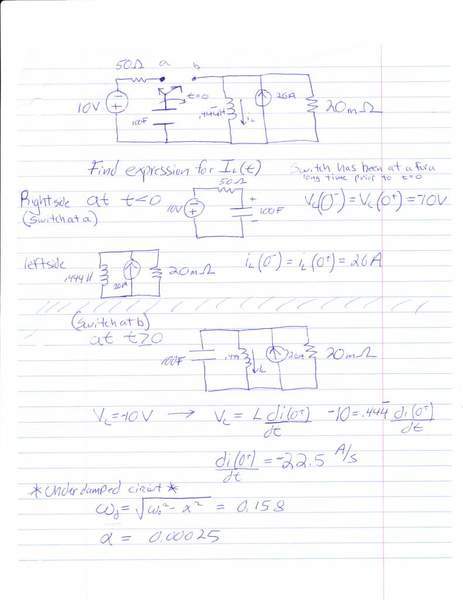 50Ω a b
10V t=0 100F .444H iL 26A 20mΩ
Find expression for IL(t) Switch has been at a for a long time prior to t=0
Right side at t<0 50Ω
(switch at a) 10V 100F Vc(0⁻) = Vc(0⁺) = -10V
left side
.444H 26A 20mΩ iL(0⁻) = iL(0⁺) = 26A
(switch at b)
at t≥0
100F iL 26A 20mΩ
VL=-10V → VL = L di(0⁺)/dt -10=.444 di(0⁺)/dt
di(0⁺)/dt = -22.5 A/s
*Underdamped circuit*
ωd = √ω₀² - α² = 0.158
α = 0.00025